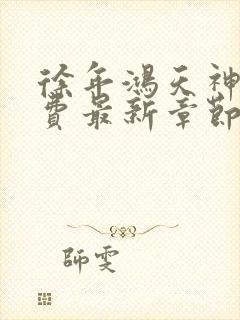 徐年鴻天神
費最新章節
師雯